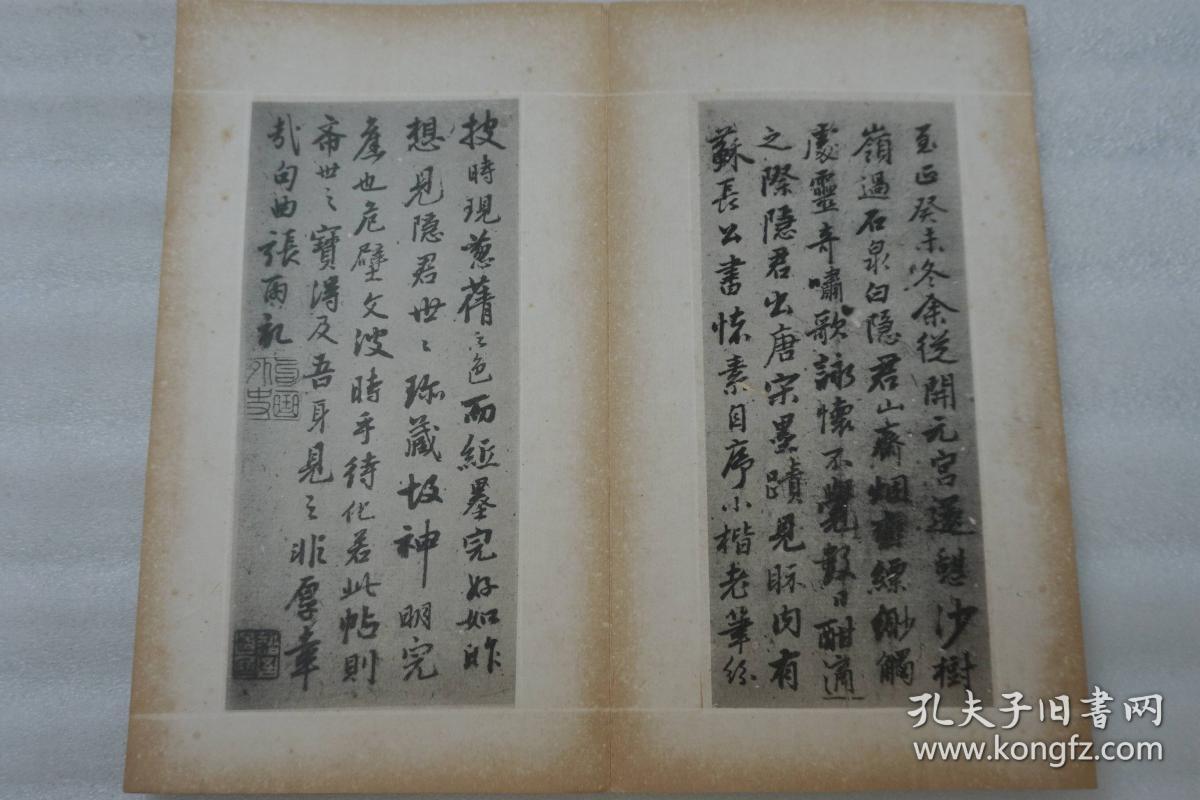 至正癸未冬余從開元宮還憩沙樹
嶺過石泉白隱君山齋烟雲縹緲觸
處靈奇嘯歌詠懷不覺數日酣適
之際隱君出唐宋墨蹟見眎内有
蘇長公書懷素自序小楷老筆紛
披時現蒼蒨之色而絍墨完好如昨
想見隱君世〻珍藏故神明完
舊也危壁文沒時乎待化若此帖則
希世之寶得及吾身見之非厚幸
哉句曲張雨記
孔夫子旧書网
www.kongfz.com